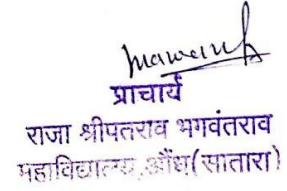 प्राचार्य
राजा श्रीपतराव भगवंतराव
महाविद्यालय, औंध(सातारा)